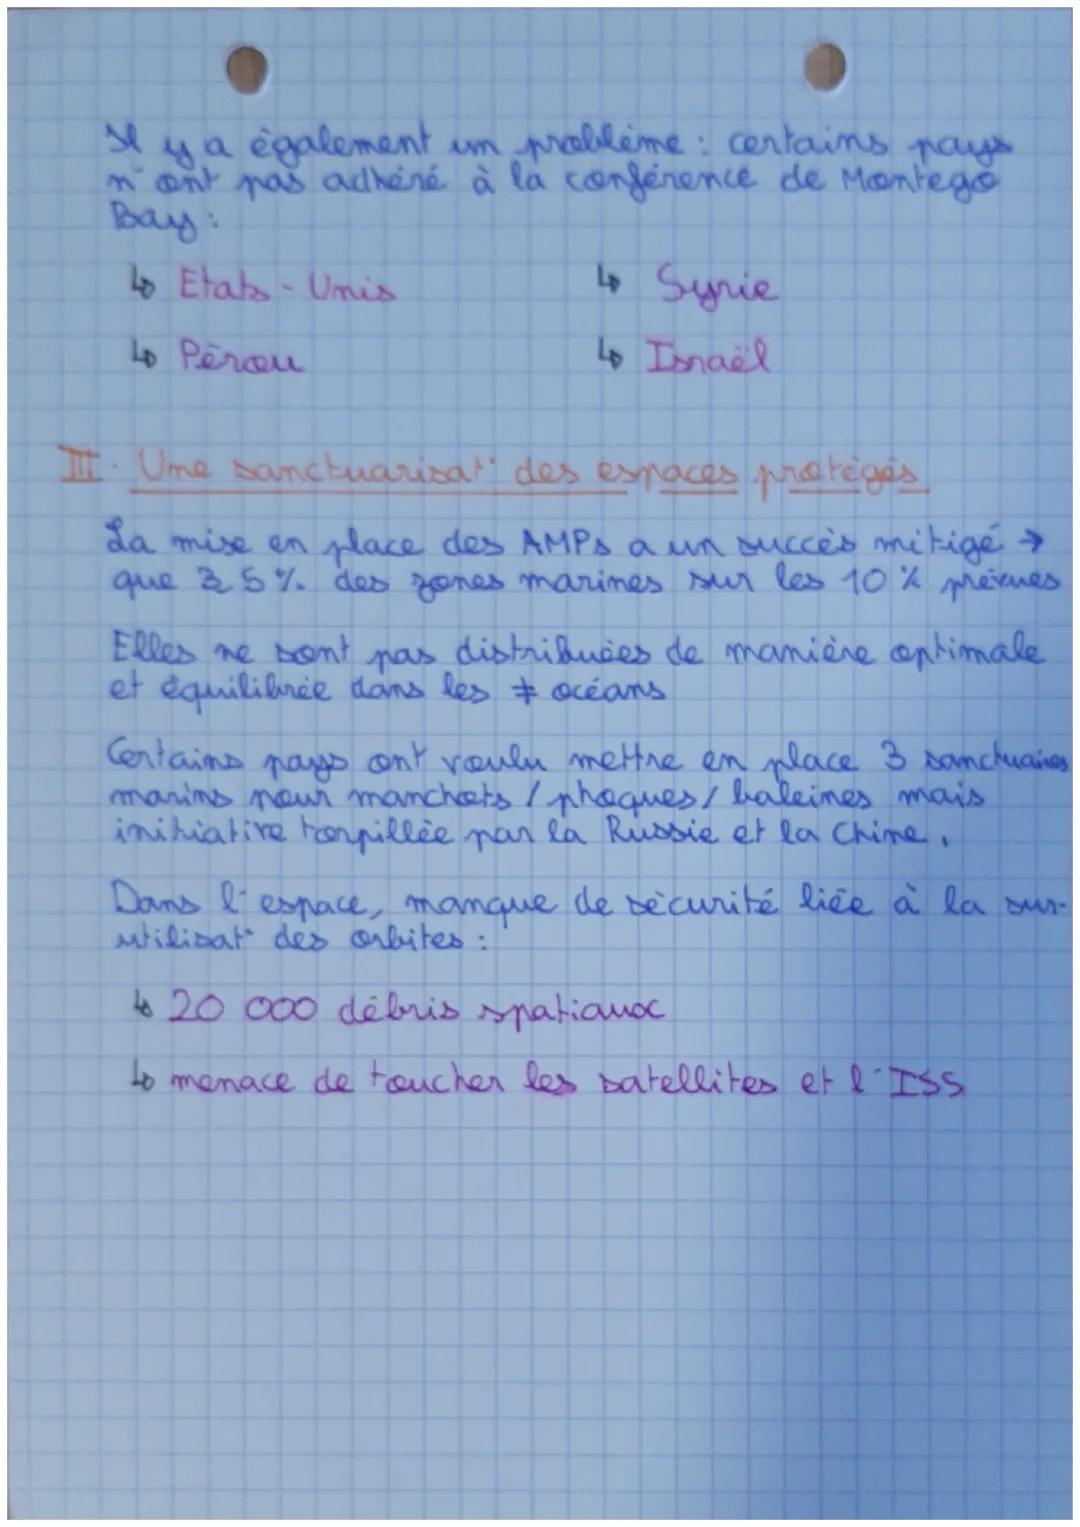 Il y a également un problème : certains pays
n'ont pas adhéré à la conférence de Montego
Bay :
↳ Etats-Unis
↳ Syrie
↳ Pérou
↳ Israël
III. Une sanctuarisat° des espaces protégés
La mise en place des AMPs a un succès mitigé →
que 3,5% des zones marines sur les 10% prévues
Elles ne sont pas distribuées de manière optimale
et équilibrée dans les ≠ océans
Certains pays ont voulu mettre en place 3 sanctuaires
marins pour manchots / phoques / baleines mais
initiative torpillée par la Russie et la Chine.
Dans l'espace, manque de sécurité liée à la sur-
utilisat° des orbites :
↳ 20 000 débris spatiaux
↳ menace de toucher les satellites et l'ISS